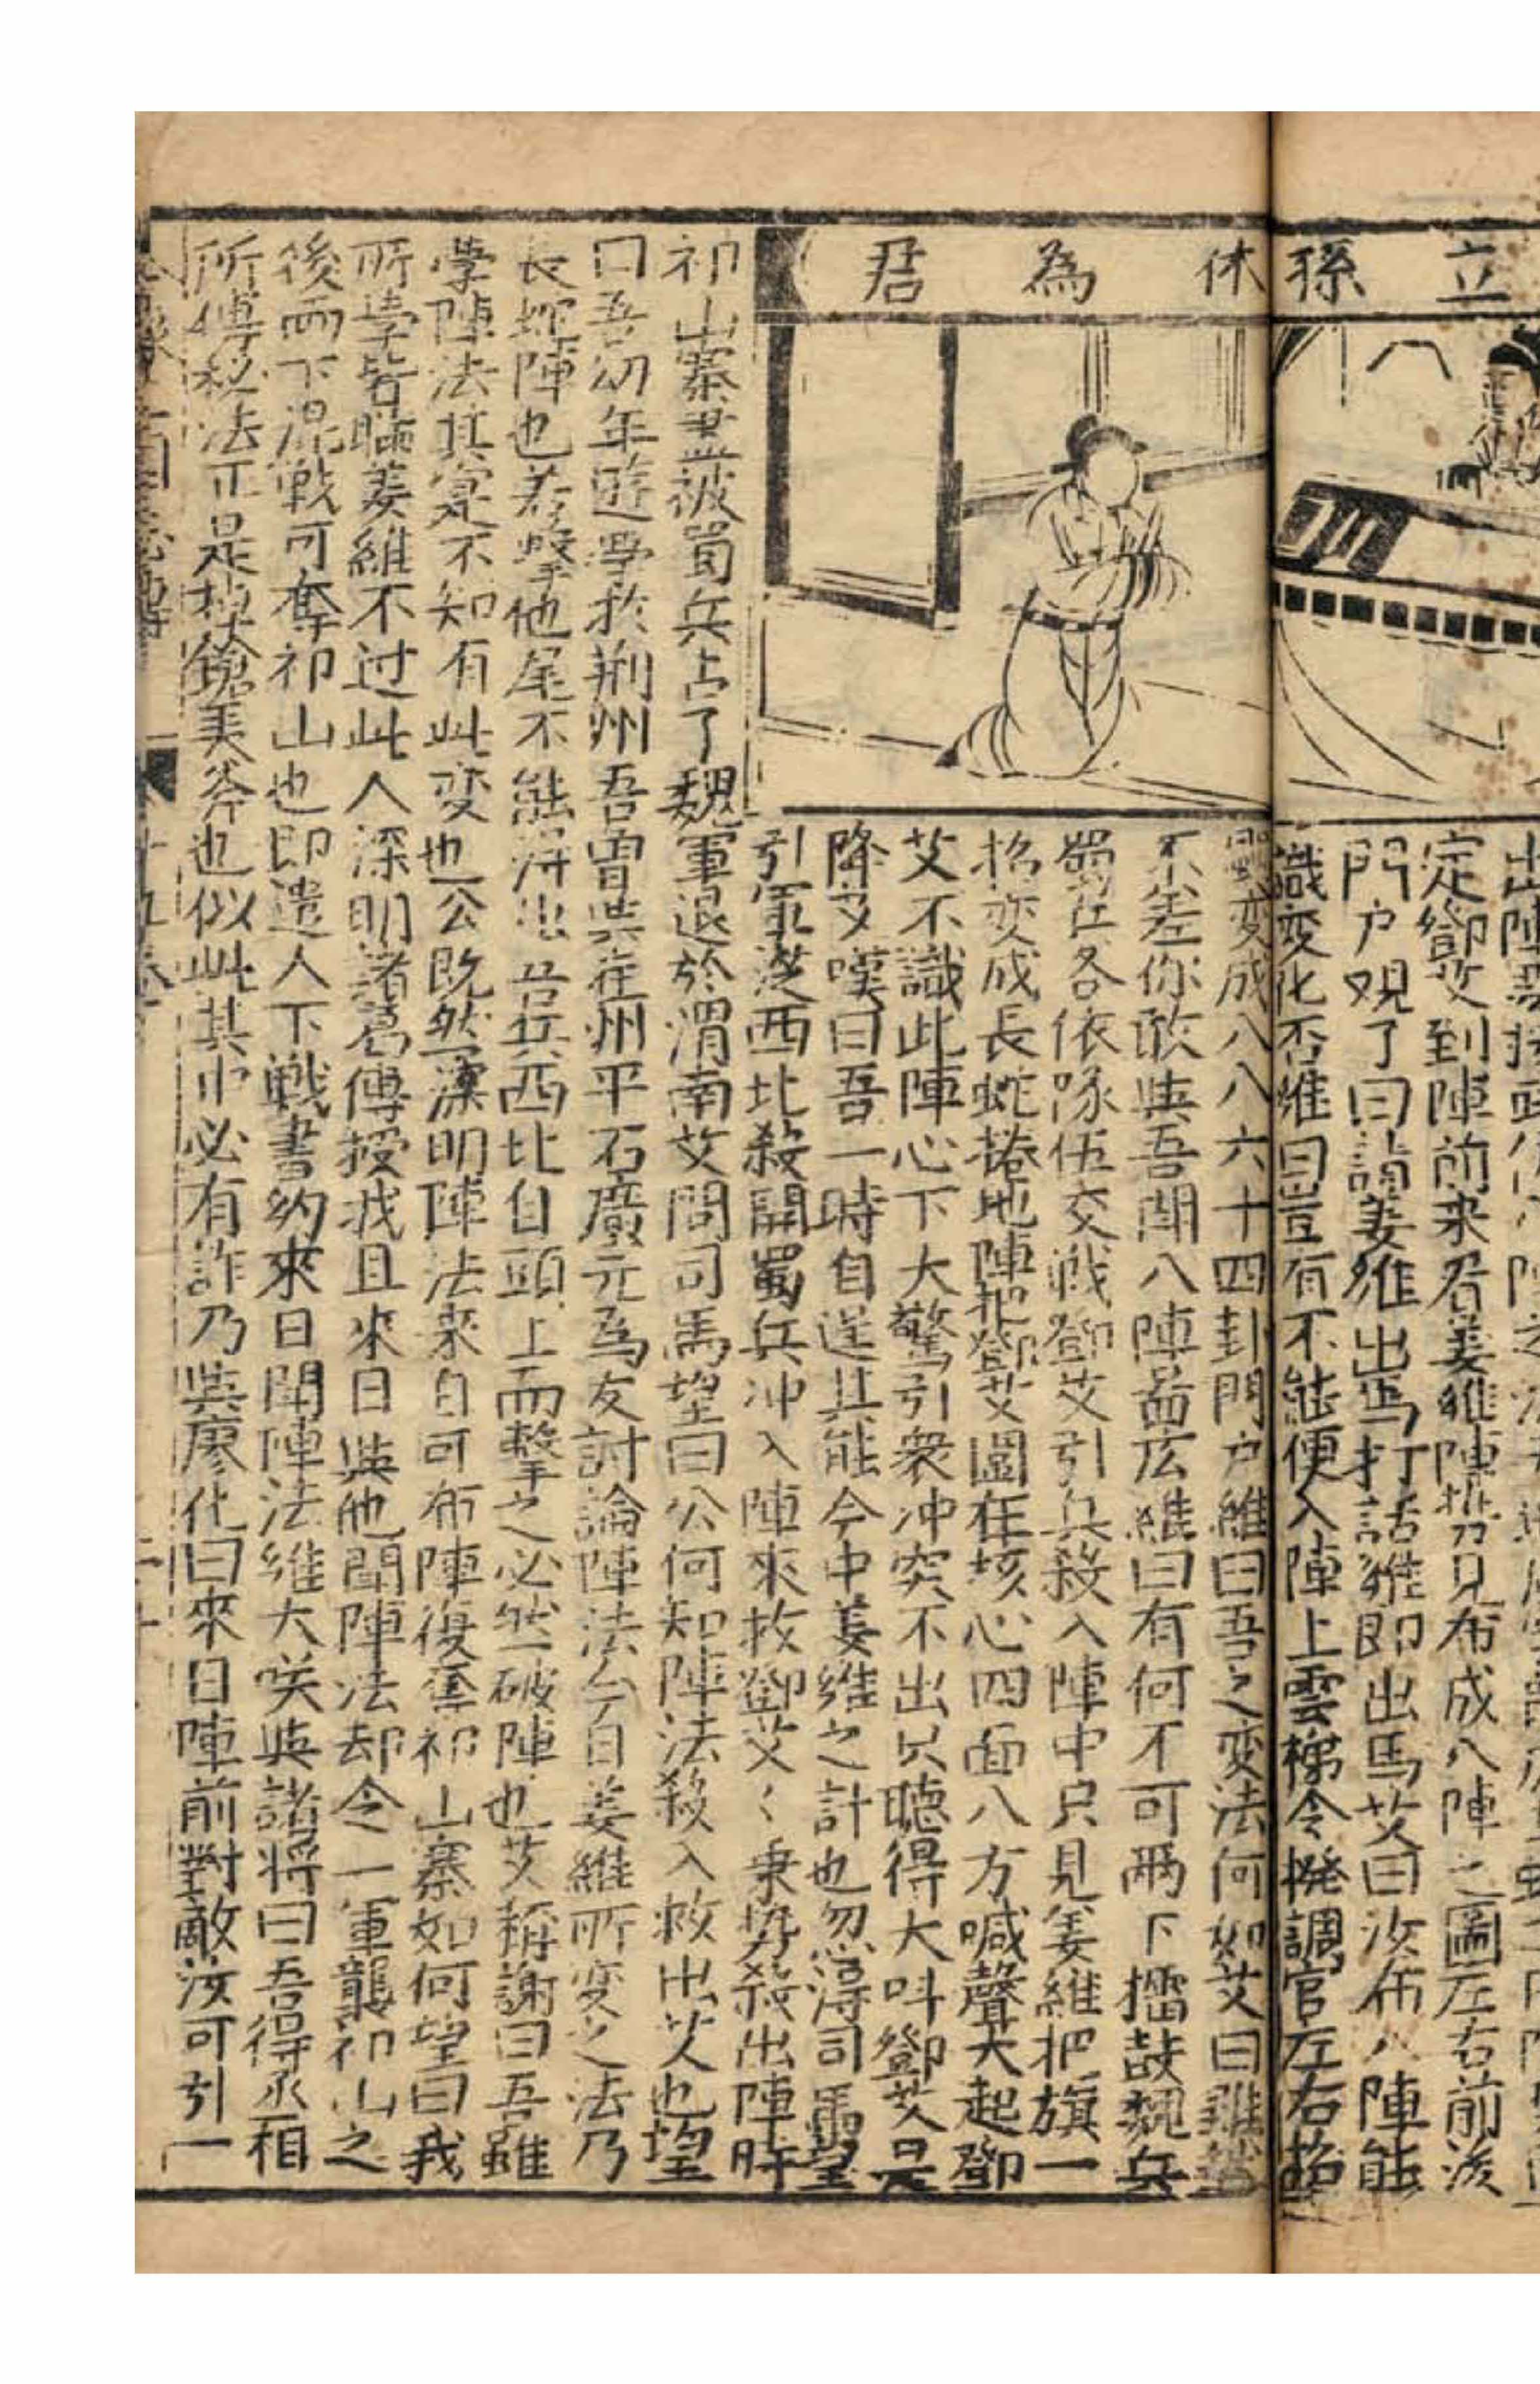 立孫休為君
定鄧艾到陣前來看姜維陣勢見布成八陣之圖左右前後
門户覌了曰請姜維出馬打話維即出馬艾曰汝布八陣能
識変化否維曰豈有不能便入陣上雲梯令撥調官左右招
変成八八六十四卦門户維曰吾之变法何如艾曰雖然
不差你敢與吾鬪八陣畐庅維曰有何不可可兩下擂鼓魏兵
蜀兵各依隊伍交戦鄧艾引兵殺入陣中只見姜維把旗一
招変成長蛇捲地陣把鄧艾圍在垓心四面八方喊聲大起鄧
艾不識此陣心下大驚引衆冲突不出只聴得大呌鄧艾早
降艾嘆曰吾一時自逞其能今中姜維之計也忽淂司馬望
引軍從西北殺開蜀兵冲入陣來救鄧艾〻乗勢殺出陣時
祁山寨盡被蜀兵占了魏軍退於渭南艾問司馬望曰公何知陣法殺入救出艾也望
曰吾幼年遊學於荆州吾曽與崔州平石廣元為友討論陣法今日姜維所変之法乃
長蛇陣也若擊他尾不能淂出吾兵西北自頭上而擊之必然破陣也艾稱謝曰吾雖
学陣法其寔不知有此变也公既然深明陣法来日可布陣復奪祁山寨如何望曰我
所學皆瞞姜維不过此人深明諸葛傳授我且來日與他鬪陣法却令一軍襲祁山之
後兩下混戰可奪祁山也即遣人下戦書約來日鬪陣法維大咲與諸将曰吾得丞相
所傳秘法正是掉鎗美斧也似此其中必有詐乃與廖化曰來日陣前對敵汝可引一